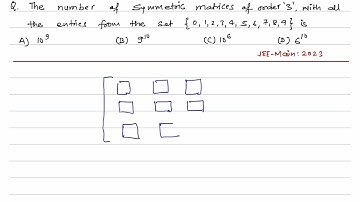 Q. The number of symmetric matrices of order '3', with all
the entries from the set {0,1,2,3,4,5,6,7,8,9} is
A) 10⁹ (B) 9¹⁰ (C) 10⁶ (D) 6¹⁰
JEE-Main: 2023